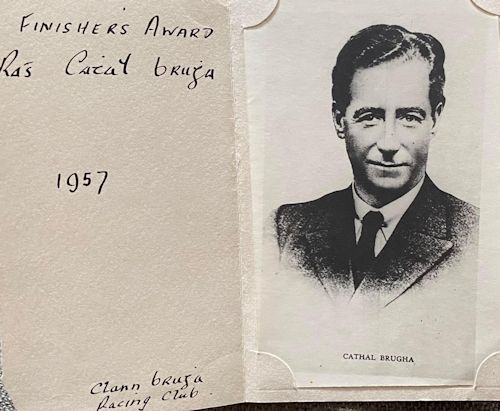 FINISHER'S AWARD
Rás Caṫal bruġa
1957
Clann bruġa
Racing Club.
CATHAL BRUGHA